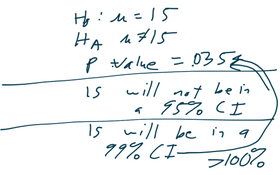 H₀: μ = 15
H_A μ ≠ 15
P value = .035
15 will not be in
a 95% CI
15 will be in a
99% CI
>100%